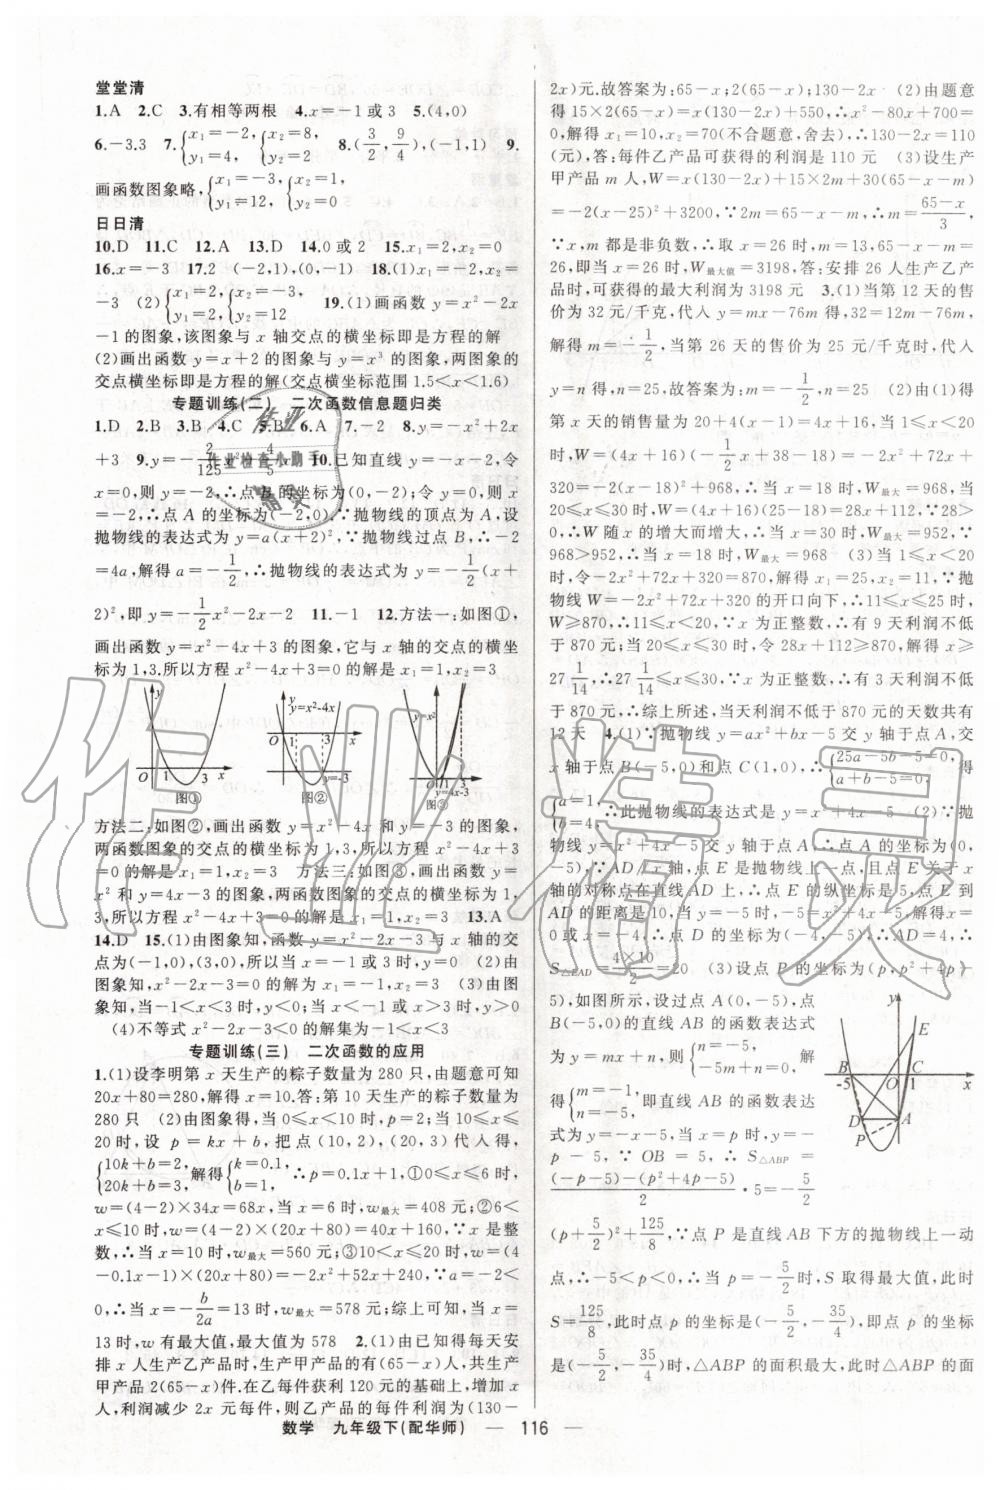 堂堂清
1.A 2.C 3.有相等两根 4.x=-1或3 5.(4,0)
6.-3,3 7.{x₁=-2, y₁=4, {x₂=8, y₂=16, 8.(3/2,9/4),(-1,1) 9.
画函数图象略,{x₁=-3, y₁=12, {x₂=1, y₂=0
日日清
10.D 11.C 12.A 13.D 14.0或2 15.x₁=2,x₂=0
16.x=-3 17.2 (-2,1),(0,-1) 18.(1)x₁=-2,x₂=
-3 (2){x₁=-2, y₁=6, {x₂=-3, y₂=12 19.(1)画函数y=x²-2x
-1的图象,该图象与x轴交点的横坐标即是方程的解
(2)画出函数y=x+2的图象与y=x³的图象,两图象的
交点横坐标即是方程的解(交点横坐标范围1.5<x<1.6)
专题训练(二) 二次函数信息题归类
1.D 2.B 3.B 4.C 5.B 6.A 7.-2 8.y=-x²+2x
+3 9.y=-2/125x²+4/5x 10.已知直线y=-x-2,令
x=0,则y=-2,∴点B的坐标为(0,-2);令y=0,则x
=-2,∴点A的坐标为(-2,0),∵抛物线的顶点为A,设
抛物线的表达式为y=a(x+2)²,∵抛物线过点B,∴-2
=4a,解得a=-1/2,∴抛物线的表达式为y=-1/2(x+
2)²,即y=-1/2x²-2x-2 11.-1 12.方法一:如图①,
画出函数y=x²-4x+3的图象,它与x轴的交点的横坐
标为1,3.所以方程x²-4x+3=0的解是x₁=1,x₂=3
y O 1 3 x 图①
y y=x²-4x O 1 3 x y=-3 图②
y y=x² O 1 3 x y=4x-3 图③
方法二:如图②,画出函数y=x²-4x和y=-3的图象,
两函数图象的交点的横坐标为1,3,所以方程x²-4x+
3=0的解是x₁=1,x₂=3 方法三:如图③,画出函数y=
x²和y=4x-3的图象,两函数图象的交点的横坐标为1,
3,所以方程x²-4x+3=0的解是x₁=1,x₂=3 13.A
14.D 15.(1)由图象知,函数y=x²-2x-3与x轴的交
点为(-1,0),(3,0),所以当x=-1或3时,y=0 (2)由
图象知,方程x²-2x-3=0的解为x₁=-1,x₂=3 (3)由图
象知,当-1<x<3时,y<0;当x<-1或x>3时,y>0
(4)不等式x²-2x-3<0的解集为-1<x<3
专题训练(三) 二次函数的应用
1.(1)设李明第x天生产的粽子数量为280只,由题意可知
20x+80=280,解得x=10.答:第10天生产的粽子数量为
280只 (2)由图象得,当0≤x<10时,p=2;当10≤x≤
20时,设p=kx+b,把点(10,2),(20,3)代入得,
{10k+b=2, 20k+b=3, 解得{k=0.1, b=1, ∴p=0.1x+1,①0≤x≤6时,
w=(4-2)×34x=68x,当x=6时,w最大=408元;②6<
x≤10时,w=(4-2)×(20x+80)=40x+160,∵x是整
数,∴当x=10时,w最大=560元;③10<x≤20时,w=(4
-0.1x-1)×(20x+80)=-2x²+52x+240,∵a=-2<
0,∴当x=-b/2a=13时,w最大=578元;综上可知,当x=
13时,w有最大值,最大值为578 2.(1)由已知得每天安
排x人生产乙产品时,生产甲产品的有(65-x)人,共生产
甲产品2(65-x)件.在乙每件获利120元的基础上,增加x
人,利润减少2x元每件,则乙产品的每件利润为(130-
2x)元.故答案为:65-x;2(65-x);130-2x (2)由题意
得15×2(65-x)=x(130-2x)+550,∴x²-80x+700=
0,解得x₁=10,x₂=70(不合题意,舍去),∴130-2x=110
(元),答:每件乙产品可获得的利润是110元 (3)设生产
甲产品m人,W=x(130-2x)+15×2m+30(65-x-m)
=-2(x-25)²+3200,∵2m=65-x-m,∴m=65-x/3,
∵x,m都是非负数,∴取x=26时,m=13,65-x-m=
26,即当x=26时,W最大值=3198,答:安排26人生产乙产
品时,可获得的最大利润为3198元 3.(1)当第12天的售
价为32元/千克,代入y=mx-76m得,32=12m-76m,
解得m=-1/2,当第26天的售价为25元/千克时,代入
y=n得,n=25,故答案为:m=-1/2,n=25 (2)由(1)得
第x天的销售量为20+4(x-1)=4x+16,当1≤x<20
时,W=(4x+16)(-1/2x+38-18)=-2x²+72x+
320=-2(x-18)²+968,∴当x=18时,W最大=968,当
20≤x≤30时,W=(4x+16)(25-18)=28x+112,∵28>
0,∴W随x的增大而增大,∴当x=30时,W最大=952,∵
968>952,∴当x=18时,W最大=968 (3)当1≤x<20
时,令-2x²+72x+320=870,解得x₁=25,x₂=11,∵抛
物线W=-2x²+72x+320的开口向下,∴11≤x≤25时,
W≥870,∴11≤x<20,∵x为正整数,∴有9天利润不低
于870元;当20≤x≤30时,令28x+112≥870,解得x≥
27 1/14,∴27 1/14≤x≤30,∵x为正整数,∴有3天利润不低
于870元,∴综上所述,当天利润不低于870元的天数共有
12天 4.(1)∵抛物线y=ax²+bx-5交y轴于点A,交
x轴于点B(-5,0)和点C(1,0),∴{25a-5b-5=0, a+b-5=0,
得{a=1, b=4, ∴此抛物线的表达式是y=x²+4x-5 (2)∵抛
物线y=x²+4x-5交y轴于点A,∴点A的坐标为(0,
-5),∵AD∥x轴,点E是抛物线上一点,且点E关于x
轴的对称点在直线AD上,∴点E的纵坐标是5,点E到
AD的距离是10,当y=-5时,-5=x²+4x-5,解得x=
0或x=-4,∴点D的坐标为(-4,-5),∴AD=4,∴
S△EAD=4×10/2=20 (3)设点P的坐标为(p,p²+4p-
5),如图所示,设过点A(0,-5),点
B(-5,0)的直线AB的函数表达式
为y=mx+n,则{n=-5, -5m+n=0, 解
得{m=-1, n=-5, 即直线AB的函数表达
式为y=-x-5,当x=p时,y=-
p-5,∵OB=5,∴S△ABP=
(-p-5)-(p²+4p-5)/2·5=-5/2
y E B -5 O C 1 x D A P
(p+5/2)²+125/8,∵点P是直线AB下方的抛物线上一动
点,∴-5<p<0,∴当p=-5/2时,S取得最大值,此时
S=125/8,此时点p的坐标是(-5/2,-35/4),即点p的坐标
是(-5/2,-35/4)时,△ABP的面积最大,此时△ABP的面
数学 九年级下(配华师) — 116 —
作业精灵
作业检查小助手